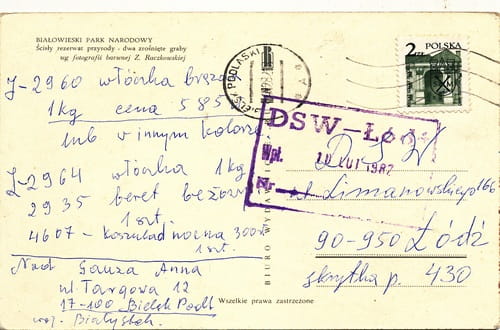 BIAŁOWIESKI PARK NARODOWY
Ścisły rezerwat przyrody - dwa zrośnięte graby
wg fotografii barwnej Z. Raczkowskiej
J-2960 włóczka brąz
1 kg cena 585
lub w innym kolorze
J-2964 włóczka 1 kg
2935 beret beżowy
1 szt.
4607 - koszula nocna 300
1 szt.
Nad Gauza Anna
ul Targowa 12
17-100 Bielsk Podl
woj. Białystok.
BIURO WYDAWNICZE
BIELSK PODLASKI
2 zł POLSKA
DSW-Łódź
Wpł. 10 LUT 1982
Nr
D.S.W
ul Limanowskiego 166
90-950 Łódź
skrytka p. 430
Wszelkie prawa zastrzeżone